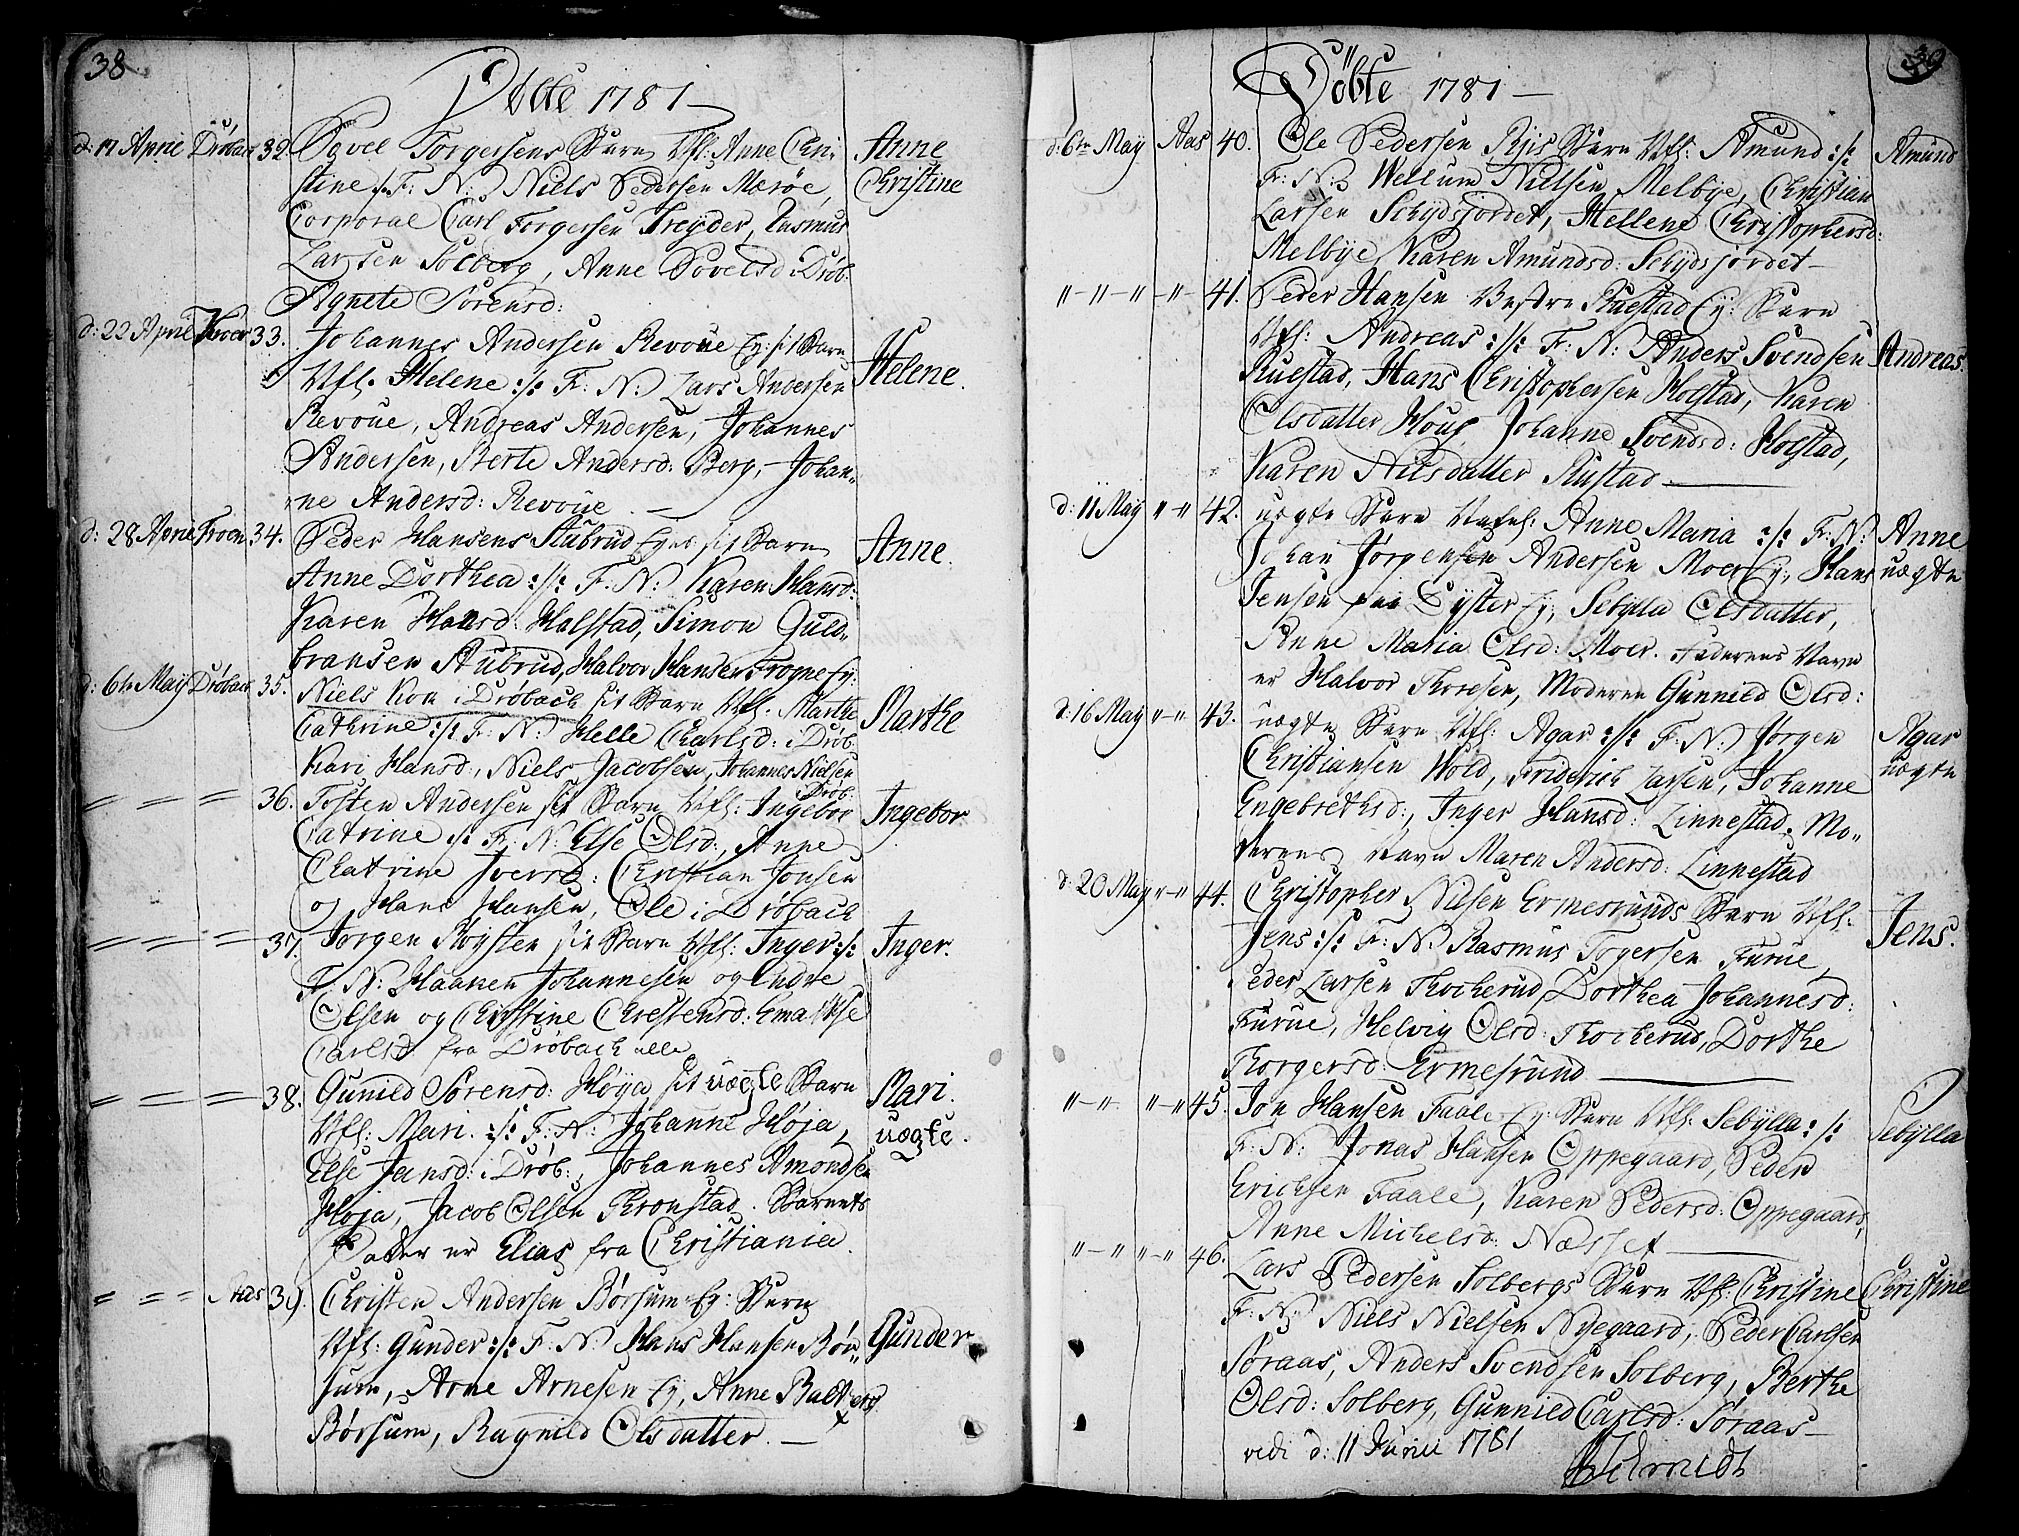 38
Döbte 1781
d: 17 April Dröbach 32. Povel Torgersens Barn Vfl: Anne Chri-
stine :/: F: N: Niels Pedersen Merøe,
Corporal Carl Torgersen Treyder, Rasmus
Larsen Solberg, Anne Povelsd: i Drøb:
Agnete Sørensd:
Anne
Christine
d: 22 April Kroer 33. Johannes Andersen Revoue Ey: sit Barn
Vfl: Helene :/: F: N: Lars Andersen
Revoue, Andreas Andersen, Johannes
Andersen, Berte Andersd: Berg, Johan-
ne Andersd: Revoue.
Helene.
d: 28 April Froen 34. Peder Hansens Aubrud Eyer sit Barn
Anne Dorthea :/: F: N: Karen Hansd:
Karen Hansd: Halstad, Simon Guld-
bransen Aubrud, Halvor Hansen Frogne Ey:
Anne.
d: 6te May Dröbach 35. Niels Kon i Drøbach sit Barn Vfl: Marthe
Cathrine :/: F: N: Helle Charlsd: i Drøb:
Kari Hansd:, Niels Jacobsen, Johannes Nielsen
Drøb:
Marthe
36. Tosten Andersen sit Barn Vfl: Ingebor
Catrine :/: F: N: Else Olsd:, Anne
Chatrine Iversd: Christian Jonsen
og Hans Hansen, Ole i Drøbach
Ingebor
37. Jørgen Røysten sit Barn Vfl: Inger :/:
F: N: Haanen Johannesen og Endre
Olsen og Christine Chrestensd: Else
Carlsd: fra Drøbach alle
Inger.
38. Gunild Sørensd: Høya sit uægte Barn
Vfl: Mari. :/: F: N: Johanne Høja,
Else Jensd: i Drøb:, Johannes Amondsen
Høja, Jacob Olsen Thronstad. Barnets
Fader er Elias fra Christiania.
Mari.
uægte.
Aas 39. Christen Andersen Børsum Ey: Barn
Vfl: Gunder :/: F: N: Hans Hansen Bør-
sum, Arne Arnesen Ey, Anne Baltzersd
Børsum, Ragnild Olsdatter.
Gunder
39
Döbte 1781
d: 6te May Aas 40. Ole Pedersen Riis Barn Vfl: Amund :/:
F: N: Wellum Nielsen Melbye, Christian
Larsen Schydsjordet, Hellene Christophersd:
Melbye, Karen Amundsd: Schydsjordet
Amund
41. Peder Hansen Vestre Ruestad Ey: Barn
Vfl: Andreas :/: F: N: Anders Svendsen
Ruestad, Hans Christophersen Holstad, Karen
Olsdatter Houg, Johanne Svendsd: Holstad,
Karen Nilsdatter Rustad
Andreas.
d: 11 May 42. uægte Barn Vfl: Anne Maria :/: F: N:
Johan Jørgensen Andersen Moer Ey, Hans
Jensen paa Dyster Ey, Sebylla Olsdatter,
Anne Maria Olsd: Moer. Faderens Navn
er Halvor Thoresen, Moderen Gunnild Olsd:
Anne
uægte
d: 16 May 43. uægte Barn Vfl: Agar :/: F: N: Jørgen
Christiansen Wold, Friderich Larsen, Johanne
Engebrethsd:, Inger Hansd: Linnestad. Mo-
derens Navn Maren Andersd: Linnestad
Agar
uægte
d: 20 May 44. Christopher Nilsen Ermesrunds Barn Vfl:
Jens :/: F: N: Rasmus Togersen Furue,
Peder Larsen Thocherud, Dorthea Johannesd:
Furue, Helvig Olsd: Thocherud, Dorthe
Thorgersd: Ermesrund
Jens.
45. Jon Hansen Faale Ey: Barn Vfl: Sebylla :/:
F: N: Jonas Hansen Oppegaard, Peder
Erichsen Faale, Karen Pedersd: Oppegaard,
Anne Michelsd: Næsset
Sebylla
46. Lars Pedersen Solbergs Barn Vfl: Christine
F: N: Niels Nielsen Nyegaard, Peder Carlsen
Søraas, Anders Svendsen Solberg, Berthe
Olsd: Solberg, Gunnild Carlsd: Søraas
Christine
vidi d: 11 Junii 1781